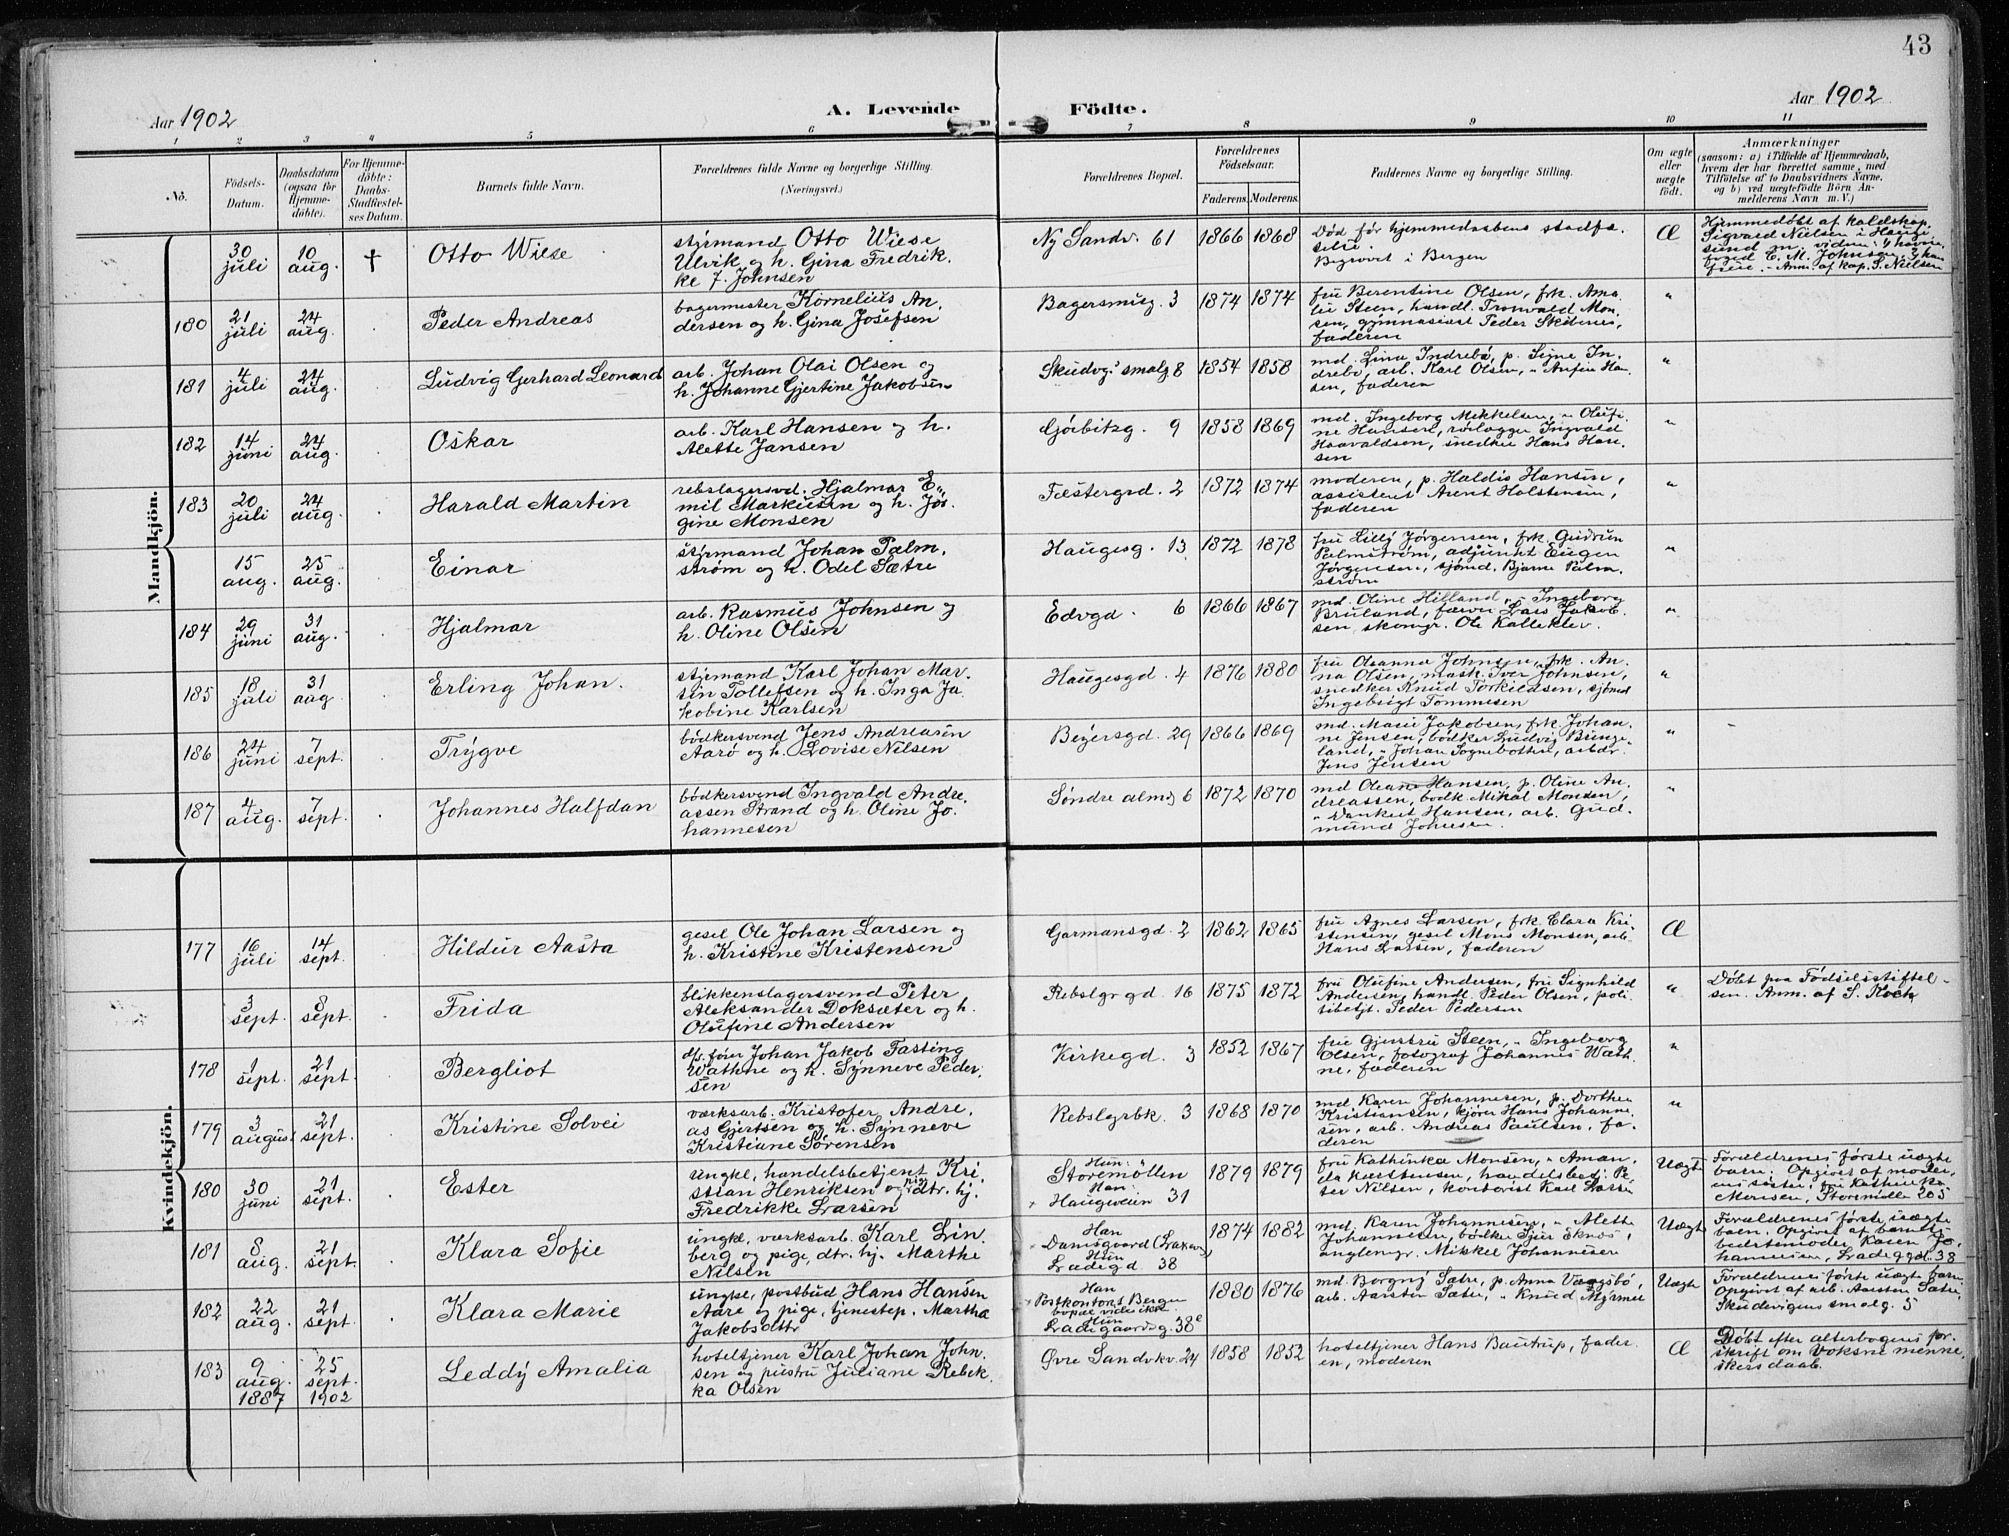 43
Aar 1902
A. Levende Födte.
Aar 1902
1 2 3 4 5 6 7 8 9 10 11
No.
Födsels-
Datum.
Daabsdatum
(ogsaa for
Hjemme-
döbte).
For Hjemme-
döbte:
Daabs-
Stadfæstel-
ses Datum.
Barnets fulde Navn.
Forældrenes fulde Navne og borgerlige Stilling.
(Næringsvei.)
Forældrenes Bopæl.
Forældrenes
Födselsaar.
Faderens. Moderens.
Faddernes Navne og borgerlige Stilling.
Om ægte
eller
uægte
födt.
Anmærkninger
(saasom: a) i Tilfælde af Hjemmedaab,
hvem der har forrettet samme, med
Tilföielse af to Daabsvidners Navne,
og b) ved uægtefödte Börn An-
melderens Navn m. V.)
Mandkjön.
30
juli
10
aug.
†
Otto Wiese
styrmand Otto Wiese
Ulvik og h. Gina Fredrik-
ke J. Johnsen
Ny Sandv. 61
1866 1868
Død før hjemmedaabens stadfæ-
stelse.
Begravet i Bergen
Æ
Hjemmedøbt af kaldskap.
Sigvard Nielsen i Hauge-
sund m. vidner: havne-
foged C. M. Johnsen
frue. - Anm. af kap. S. Nielsen
180
21
juli
24
aug.
Peder Andreas
bagermester Kornelius An-
dersen og h. Gina Josefsen
Bagersmug. 3
1874 1874
fru Berentine Olsen, frk. Ama-
lie Steen, handl. Tronvald Mon-
sen, gymnasiast Peder Skibenes,
faderen
"
181
4
juli
24
aug.
Ludvig Gerhard Leonard
arb. Johan Olai Olsen og
h. Johanne Gjertine Jakobsen
Skudvgs smalg 8
1854 1858
md. Lina Indrebø, p. Signe In-
drebø, arb. Karl Olsen, " Anfin Han-
sen, faderen
"
182
14
juni
24
aug.
Oskar
arb. Karl Hansen og h.
Alette Jansen
Gjørbitzg. 9
1858 1869
md. Ingeborg Mikkelsen, " Olufi-
ne Hansen, rørlægger Ingvald
Haavaldsen, snedker Hans Han-
sen
"
183
20
juli
24
aug.
Harald Martin
rebslagersvd. Hjalmar E-
mil Markusen og h. Jør-
gine Monsen
Fæstergrd. 2
1872 1874
moderen, p. Haldis Hansen,
assistent Arent Holstensen,
faderen
"
15
aug.
25
aug.
Einar
styrmand Johan Palm-
strøm og h. Odel Sætre
Haugesg. 13
1872 1878
fru Lilly Jørgensen, frk. Gudrun
Palmstrøm, adjunkt Eugen
Jørgensen, sjømd. Bjarne Palm-
strøm
"
184
29
juni
31
aug.
Hjalmar
arb. Rasmus Johnsen og
h. Oline Olsen
Edvgd. 6
1866 1867
md. Oline Hilland, " Ingeborg
Bruland, farver Lars Jakob-
sen, skomgr. Ole Kalleklev.
"
185
18
juli
31
aug.
Erling Johan.
styrmand Karl Johan Mar-
tin Tollefsen og h. Inga Ja-
kobine Karlsen
Haugesgd. 4
1876 1880
fru Oleanna Johnsen, frk. An-
na Olsen, mask. Iver Johnsen,
snedker Knud Torkildsen, sjømd
Ingebrigt Tommesen
"
186
24
juni
7
sept.
Trygve
bødkersvend Jens Andreasen
Aarø og h. Lovise Nilsen
Beyersgd. 29
1866 1869
md. Marie Jakobsen, frk. Johan-
ne Jensen, bødker Ludvig Binge-
land, " Johan Sognebotten, arbdr.
Jens Jensen
"
187
4
aug.
7
sept.
Johannes Halfdan
bødkersvend Ingvald Andre-
assen Strand og h. Oline Jo-
hannesen
Søndre almg 6
1872 1870
md Oleana Hansen, p. Oline An-
dreassen, bødk. Mikal Monsen,
" Dankert Hansen, arb. Gud-
mund Johnsen.
"
Kvindekjön.
177
16
juli
14
sept.
Hildur Aasta
gesel Ole Johan Larsen og
h. Kristine Kristensen
Garmansgd. 2
1862 1865
fru Agnes Larsen, frk. Clara Kri-
stensen, gesel Mons Monsen, arb.
Hans Larsen, faderen
Æ
3
sept.
8
sept.
Frida
blikkenslagersvend Peter
Aleksander Doksæter og h.
Olufine Andersen
Rebslgrgd. 16
1875 1872
fru Olufine Andersen, fru Signhild
Andersen, handl. Peder Olsen, poli-
tibetjt. Peder Pedersen
"
Døbt paa Fødselsstiftel-
sen. Anm. af S. Koch
178
1
sept.
21
sept.
Bergliot
dp. fører Johan Jakob Fasting
Wathne og h. Synneve Peder-
sen
Kirkegd. 3
1852 1867
frue Gjertru Steen, " Ingeborg
Olsen, fotograf Johannes Wath-
ne, faderen
"
179
3
august
21
sept.
Kristine Solvei
værksarb. Kristofer Andre-
as Gjertsen og h. Synneve
Kristiane Sørensen
Rebslgrbk. 3
1868 1870
md. Karen Johannesen, p. Dorthea
Kristiansen, kjører Hans Johanne-
sen, arb. Andreas Paulsen, fa-
deren
"
180
30
juni
21
sept.
Ester
ungke, handelsbetjent Kri-
stian Henriksen og pige dtr. hj.
Fredrikke Larsen
Hun:
Storemøllen
Han:
Haugveien 31
1879 1879
fru Kathinka Monsen, " Aman-
da Karstensen, handelsbetj. Pe-
ter Nilsen, kontorist Karl Larsen
Uægte
Forældrenes første uægte
barn. Opgivet af moder-
ens søster, fru Kathinka
Monsen, Storemølle 205
181
8
aug.
21
sept.
Klara Sofie
ungke, værksarb. Karl Lin-
berg og pige, dtr. hj. Marthe
Nilsen
Han
Damsgaard (Laxev.)
Hun
Ladegd 38
1874 1882
md. Karen Johannesen, " Alette
Johannesen, bødker Sjur Eknes,
anglemgr. Mikkel Johannesen
Uægte
Forældrenes første uægte
barn. Opgivet af barnets
bedstemoder Karen Jo-
hannesen, Ladeggd. 38
182
22
aug.
21
sept.
Klara Marie
ungke, postbud Hans Hansen
Aare og pige, tjenestep. Martha
Jakobsdttr
Han
Postkontoret Bergen
bopæl vides ikke.
Hun
Ladegaardsg. 38c
1880 1876
md. Borgny Sætre, p. Anna Vaagsbø,
arb. Aarsten Sætre, " Knud Myrmel
Uægte
Forældrenes første uægte barn.
Opgivet af arb. Aarsten Sætre,
Skudevigens smalg. 5
183
9
aug.
1887
25
sept.
1902
Leddy Amalia
hoteltjener Karl Johan John-
sen og hustru Juliane Rebek-
ka Olsen
Øvre Sandvkv. 24
1858 1852
hoteltjener Hans Bautrup, fader-
en, moderen
Æ
Døbt efter alterbogens for-
skrift om voksne menne-
skers daab.